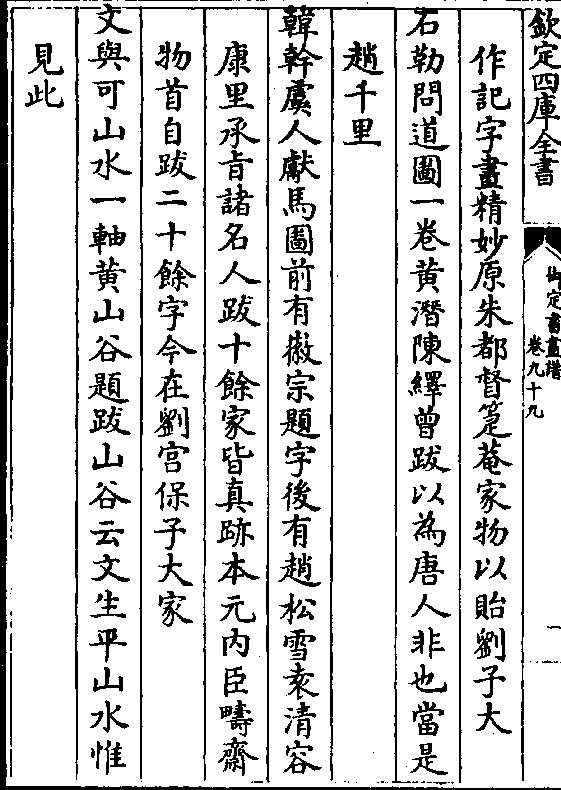 欽定四庫全書
御定書畫譜
卷九十九
一
作記字畫精妙原朱都督篁菴家物以貽劉子大
石勒問道圖一卷黃潛陳繹曾跋以為唐人非也當是
趙千里
韓幹虞人獻馬圖前有徽宗題字後有趙松雪袁清容
康里承旨諸名人跋十餘家皆真跡本元內臣疇齋
物首自跋二十餘字今在劉宫保子大家
文與可山水一軸黄山谷題跋山谷云文生平山水惟
見此